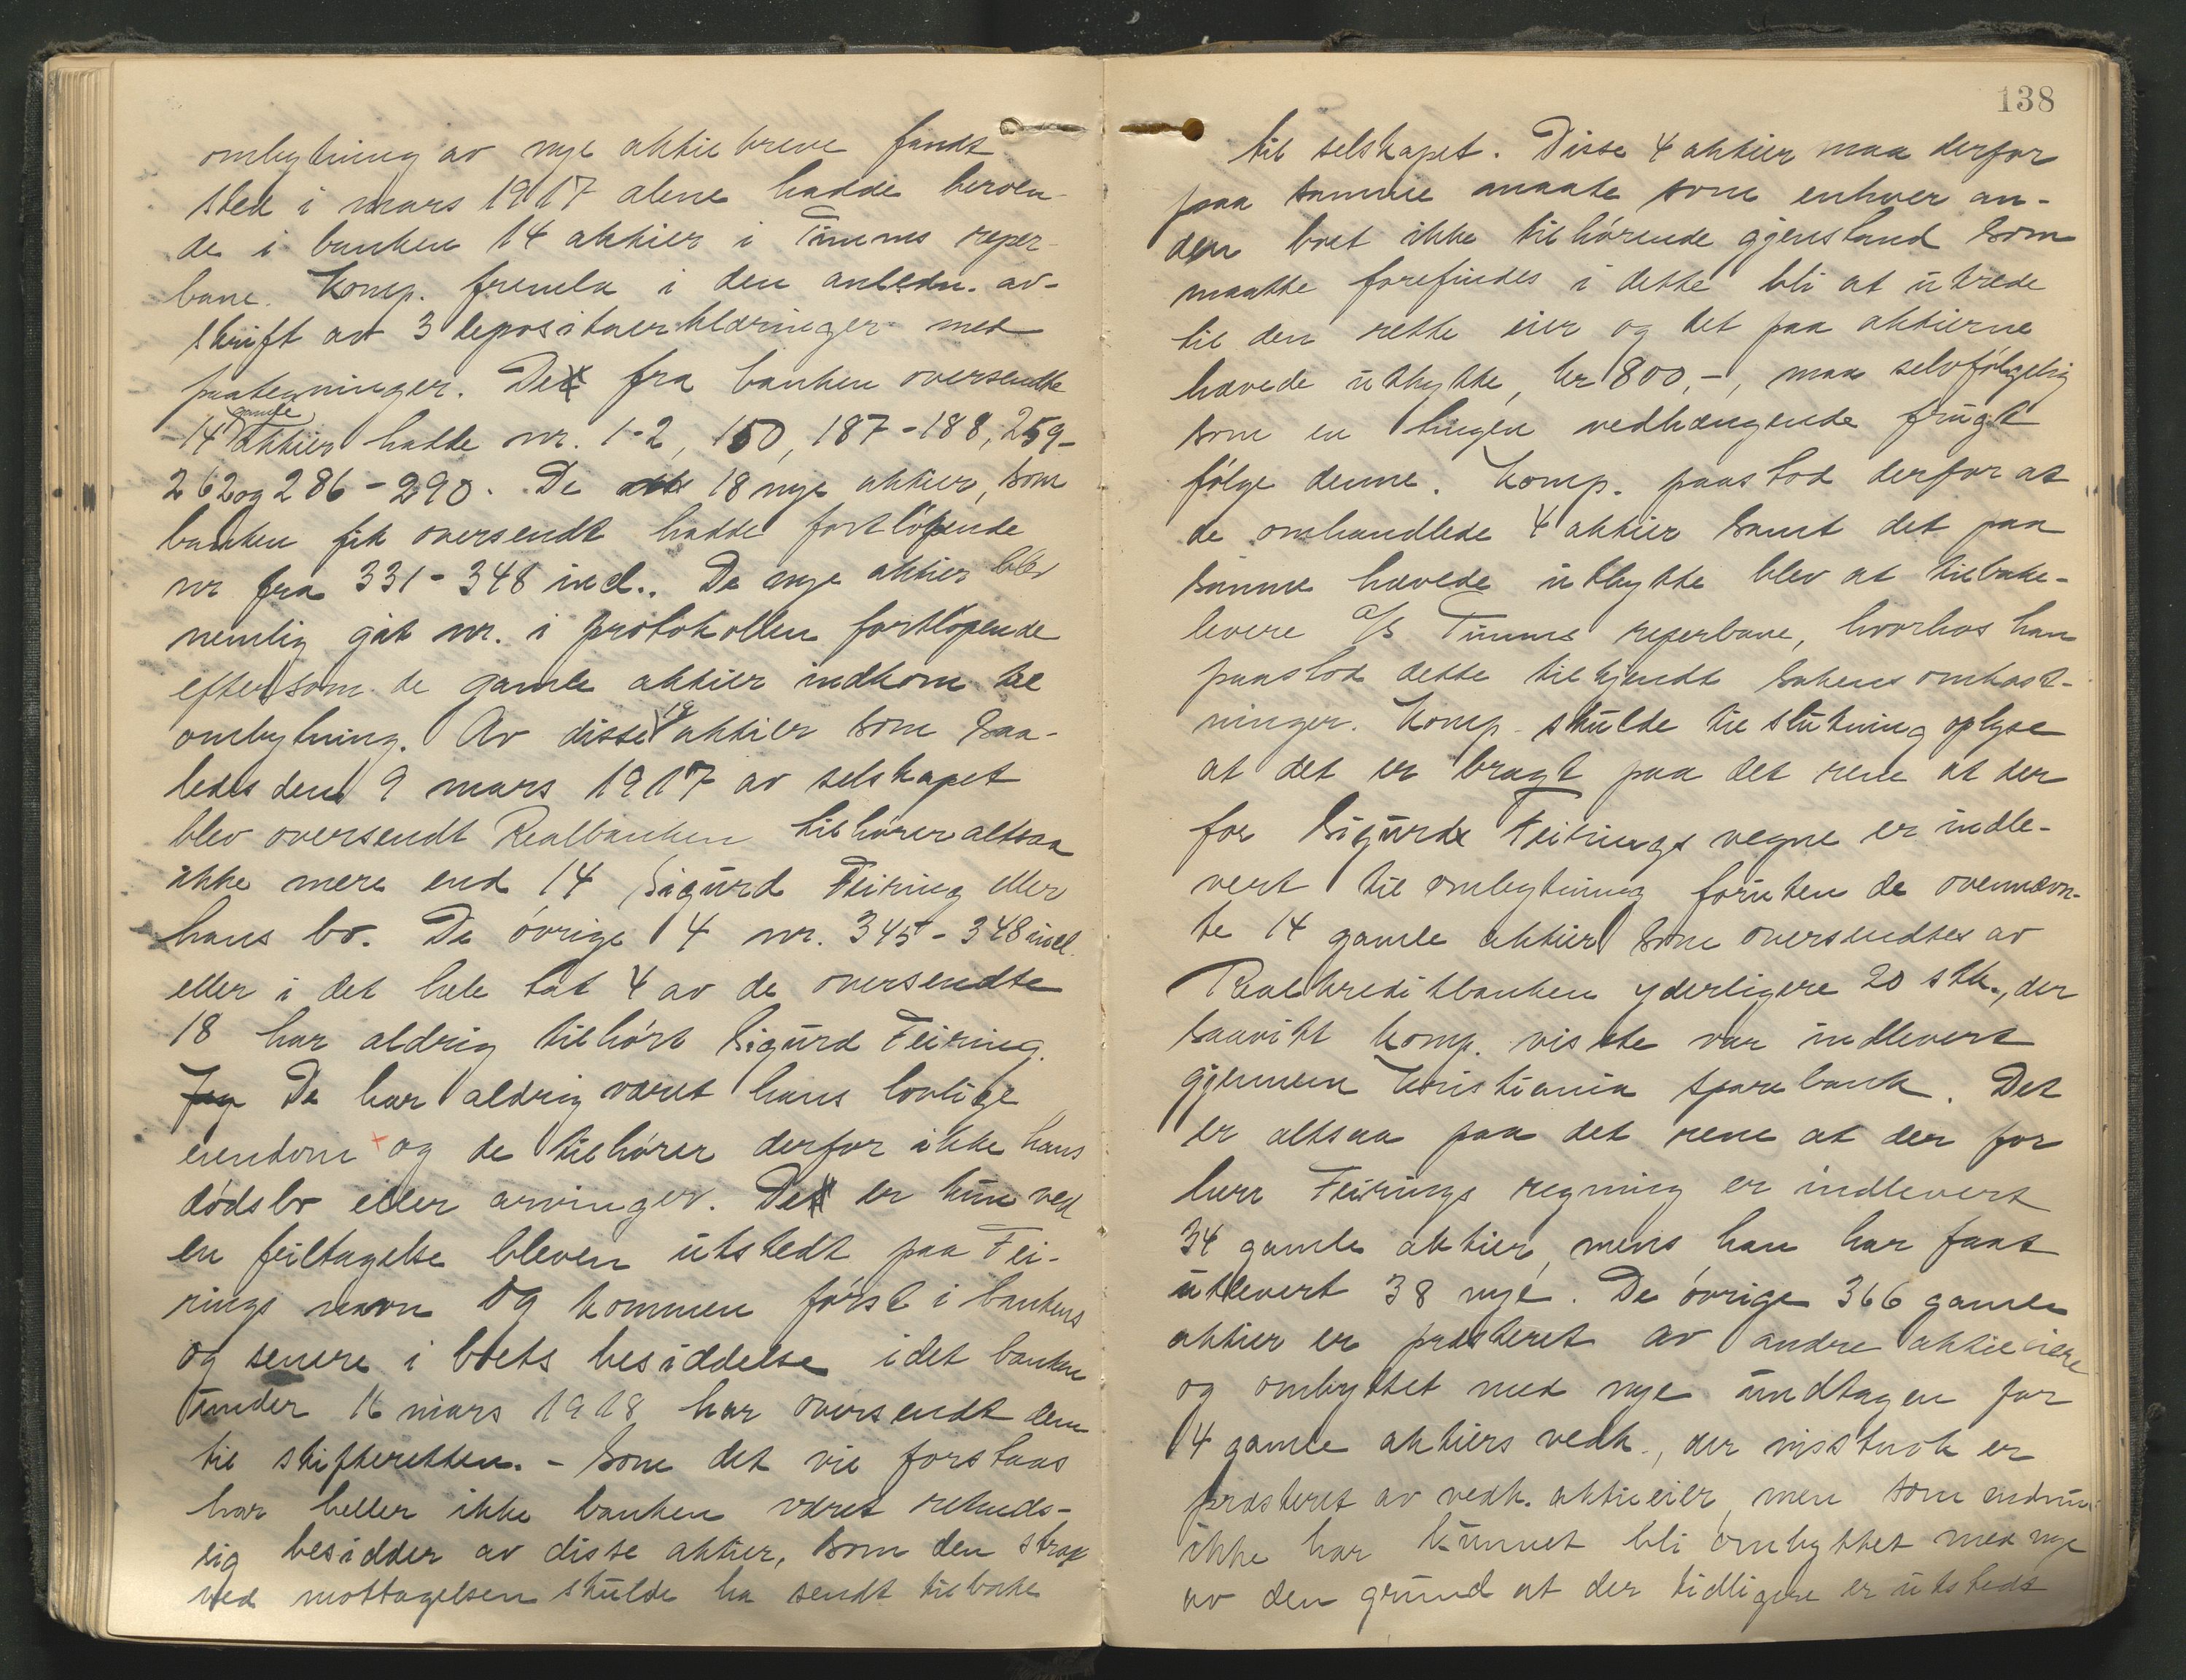 ombytning av nye aktiebreve fandt
sted i mars 1917 alene hadde beroen-
de i banken 14 aktier i Timms reper-
bane. Komp. fremla i den anledn. av-
skrift av 3 depositaerklæringer med
paategninger. De fra banken oversendte
14 gamle aktier hadde nr. 1-2, 150, 187-188, 259-
262 og 286-290. De 18 nye aktier, som
banken fik oversendt hadde fortløpende
nr fra 331-348 incl.. De nye aktier blev
nemlig git nr. i protokollen fortløpende
eftersom de gamle aktier indkom til
ombytning. Av disse 18 aktier som saa-
ledes den 9 mars 1917 av selskapet
blev oversendt Realbanken tilhører altsaa
ikke mere end 14 Sigurd Feiring eller
hans bo. De øvrige 4 nr. 345-348 incl.
eller i det hele tat 4 av de oversendte
18 har aldrig tilhørt Sigurd Feiring.
Jeg De har aldrig været hans lovlige
eiendom og de tilhører derfor ikke hans
dødsbo eller arvinger. De er kun ved
en feiltagelse bleven utstedt paa Fei-
rings navn og kommen først i bankens
og senere i boets besiddelse idet banken
under 16 mars 1918 har oversendt dem
til skifteretten. - Som det vil forstaaes
har heller ikke banken været retmæs-
sig besidder av disse aktier, som den strax
ved mottagelsen skulde ha sendt tilbake
138
til selskapet. Disse 4 aktier maa derfor
paa samme maate som enhver an-
den boet ikke tilhørende gjenstand som
maatte forefindes i dette bli at utrede
til den rette eier og det paa aktierne
hævede utbytte, kr 800,-, maa selvfølgelig
som en tingen vedhængende frugt
følge denne. Komp. paastod derfor at
de omhandlede 4 aktier samt det paa
samme hævede utbytte blev at tilbake-
levere A/S Timms reperbane, hvorhos han
paastod dette tilkjendt sakens omkost-
ninger. Komp. skulde til slutning oplyse
at det er bragt paa det rene at der
for Sigurd Feirings vegne er indle-
vert til ombytning foruten de ovennævn-
te 14 gamle aktier som oversendtes av
Realkreditbanken yderligere 20 stk., der
saavidt komp. visste var indlevert
gjennem Kristiania Sparebank. Det
er altsaa paa det rene at der for
herr Feirings regning er indlevert
34 gamle aktier, mens han har faat
utlevert 38 nye. De øvrige 366 gamle
aktier er præsteret av andre aktieeiere
og ombyttet med nye undtagen for
4 gamle aktiers vedk., der visstnok er
præsteret av vedk. aktieeier, men som endnu
ikke har kunnet bli ombyttet med nye
av den grund at der tidligere er utstedt